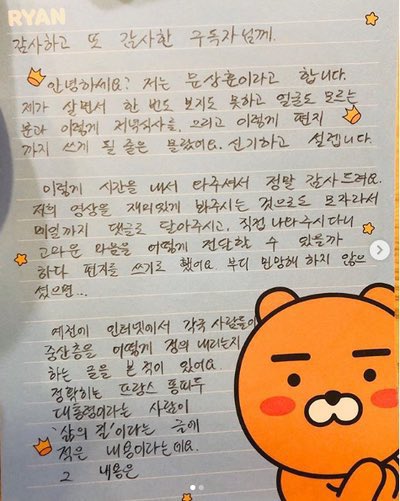 RYAN
감사하고 또 감사한 구독자님께.
안녕하세요? 저는 문상훈이라고 합니다.
제가 살면서 한 번도 보지도 못하고 얼굴도 모르는
분과 이렇게 저녁식사를, 그리고 이렇게 편지
까지 쓰게 될 줄은 몰랐어요. 신기하고 설렙니다.
이렇게 시간을 내서 와주셔서 정말 감사드려요.
저희 영상을 재미있게 봐주시는 것으로도 모자라서
매일까지 댓글로 달아주시고, 직접 나타나주시다니
고마운 마음을 어떻게 전달할 수 있을까
하다 편지를 쓰기로 했어요. 부디 민망해 하지 않으
셨으면...
예전에 인터넷에서 각국 사람들이
중산층을 어떻게 정의 내리는지
하는 글을 본 적이 있어요.
정확히는 프랑스 퐁피두
대통령이라는 사람이
'삶의 질'이라는 글에
적은 내용이라는데요.
그 내용은